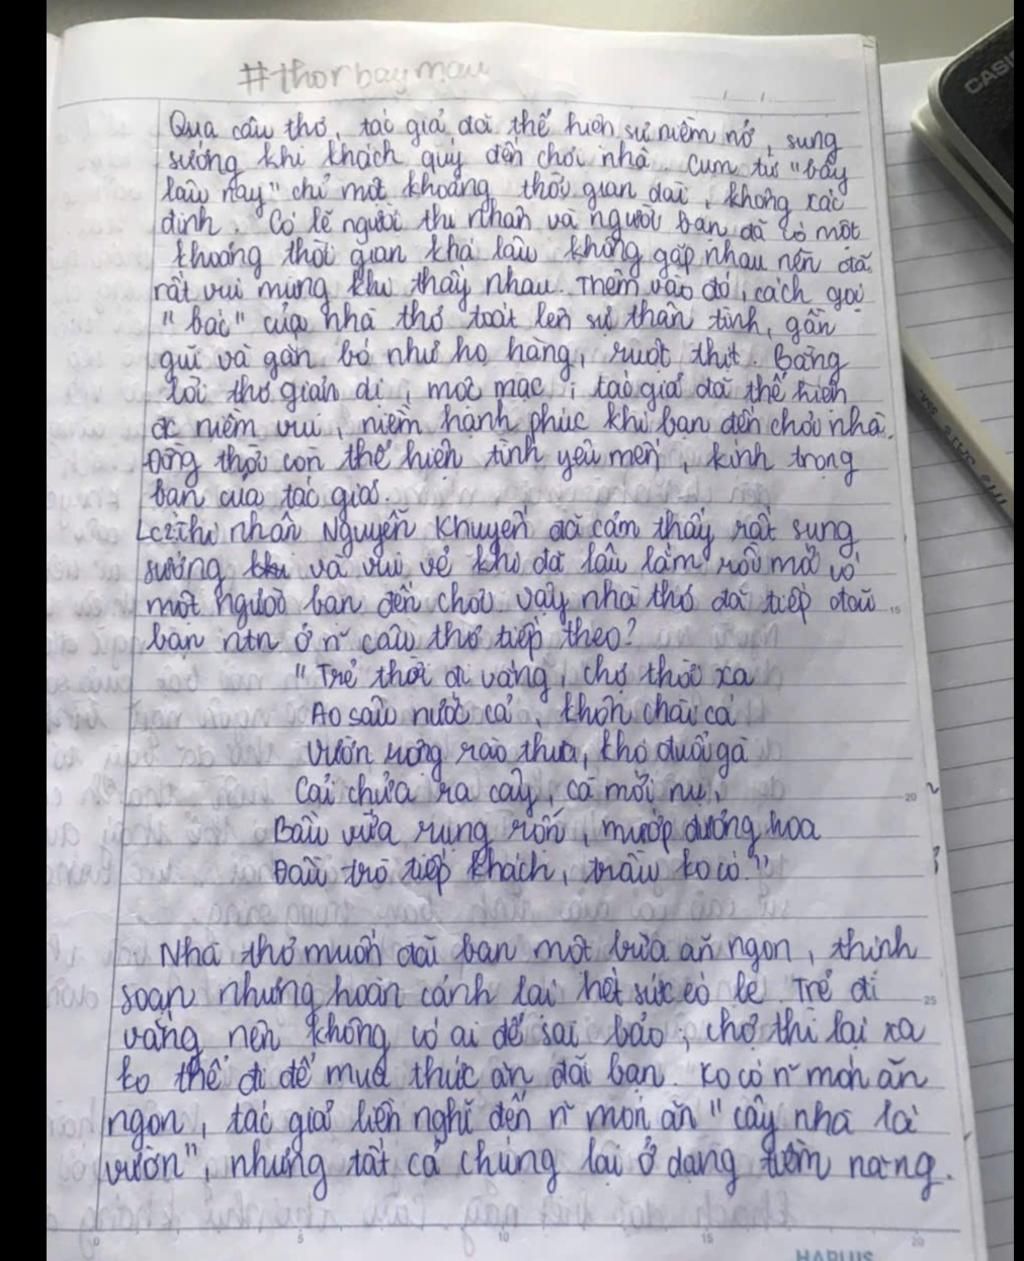 #thorbaymau
Qua câu thơ, tác giả đã thể hiện sự niềm nở, sung
sướng khi khách quý đến chơi nhà. Cụm từ "bấy
lâu nay" chỉ một khoảng thời gian dài, không xác
định. Có lẽ người thi nhân và người bạn đã có một
khoảng thời gian khá lâu không gặp nhau nên đã
rất vui mừng khi thấy nhau. Thêm vào đó, cách gọi
"bác" của nhà thơ toát lên sự thân tình, gần
gũi và gắn bó như họ hàng, ruột thịt. Bằng
lời thơ giản dị, mộc mạc, tác giả đã thể hiện
đc niềm vui, niềm hạnh phúc khi bạn đến chơi nhà.
Đồng thời còn thể hiện tình yêu mến, kính trọng
bạn của tác giả.
Lc2: thi nhân Nguyễn Khuyến đã cảm thấy rất sung
sướng và vui vẻ khi đã lâu lắm rồi mới có
một người bạn đến chơi. Vậy nhà thơ đã tiếp đãi
bạn ntn ở n~ câu thơ tiếp theo?
"Trẻ thời đi vắng, chợ thời xa
Ao sâu nước cả, khôn chài cá
Vườn rộng rào thưa, khó đuổi gà
Cải chửa ra cây, cà mới nụ,
Bầu vừa rụng rốn, mướp đương hoa
Đầu trò tiếp khách, trầu ko có."
Nhà thơ muốn đãi bạn một bữa ăn ngon, thịnh
soạn nhưng hoàn cảnh lại hết sức éo le. Trẻ đi
vắng nên không có ai để sai bảo, chợ thì lại xa
ko thể đi để mua thức ăn đãi bạn. Ko có n~ món ăn
ngon, tác giả liền nghĩ đến n~ món ăn "cây nhà lá
vườn", nhưng tất cả chúng lại ở dạng tiềm năng.
15
20
25
0 5 10 15 20
HAPLUS
CASIO